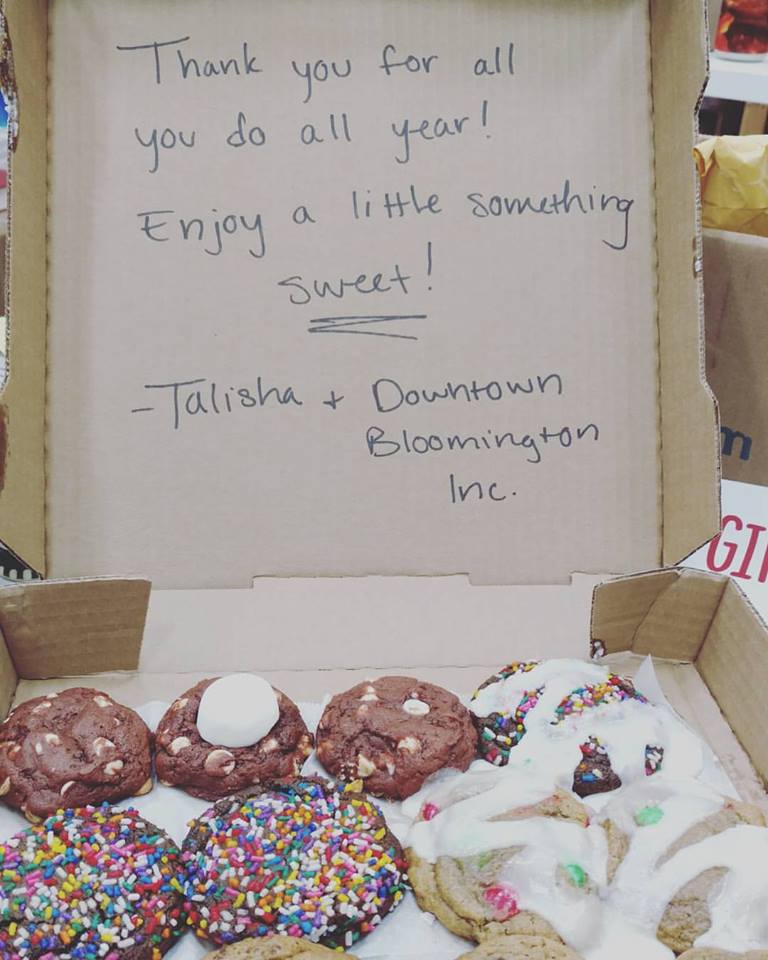 Thank you for all
you do all year!
Enjoy a little something
sweet!
-Talisha + Downtown
Bloomington
Inc.